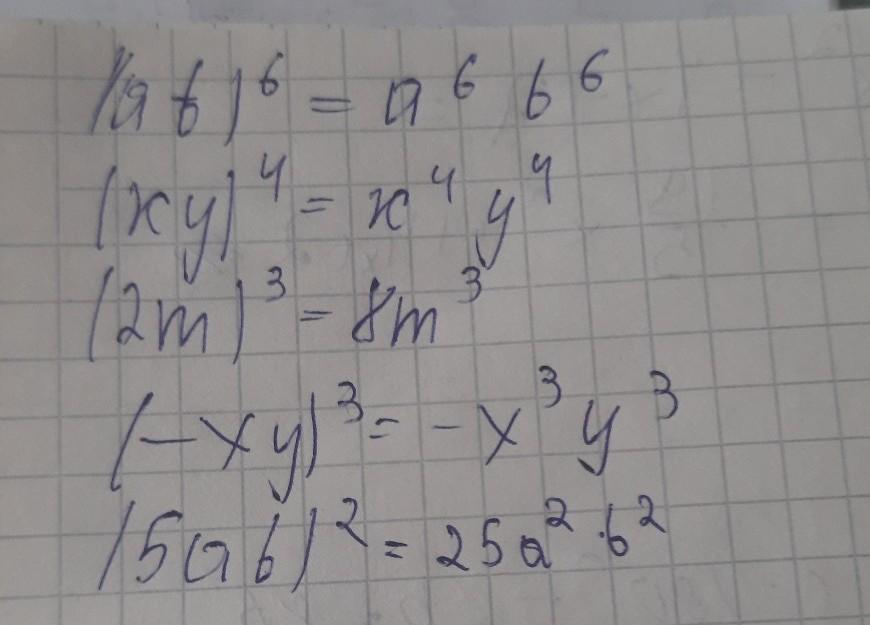 (ab)⁶ = a⁶ b⁶
(xy)⁴ = x⁴ y⁴
(2m)³ = 8m³
(-xy)³ = -x³ y³
(5ab)² = 25a² · b²